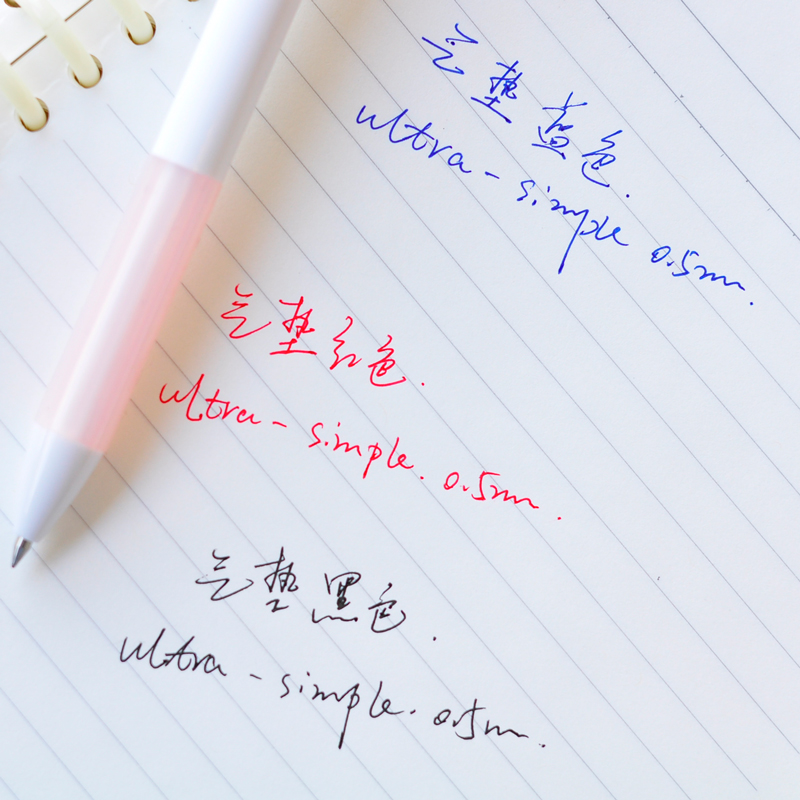 气垫蓝色.
ultra-simple 0.5mm.
气垫红色.
ultra-simple. 0.5mm.
气垫黑色.
ultra-simple. 0.5mm.